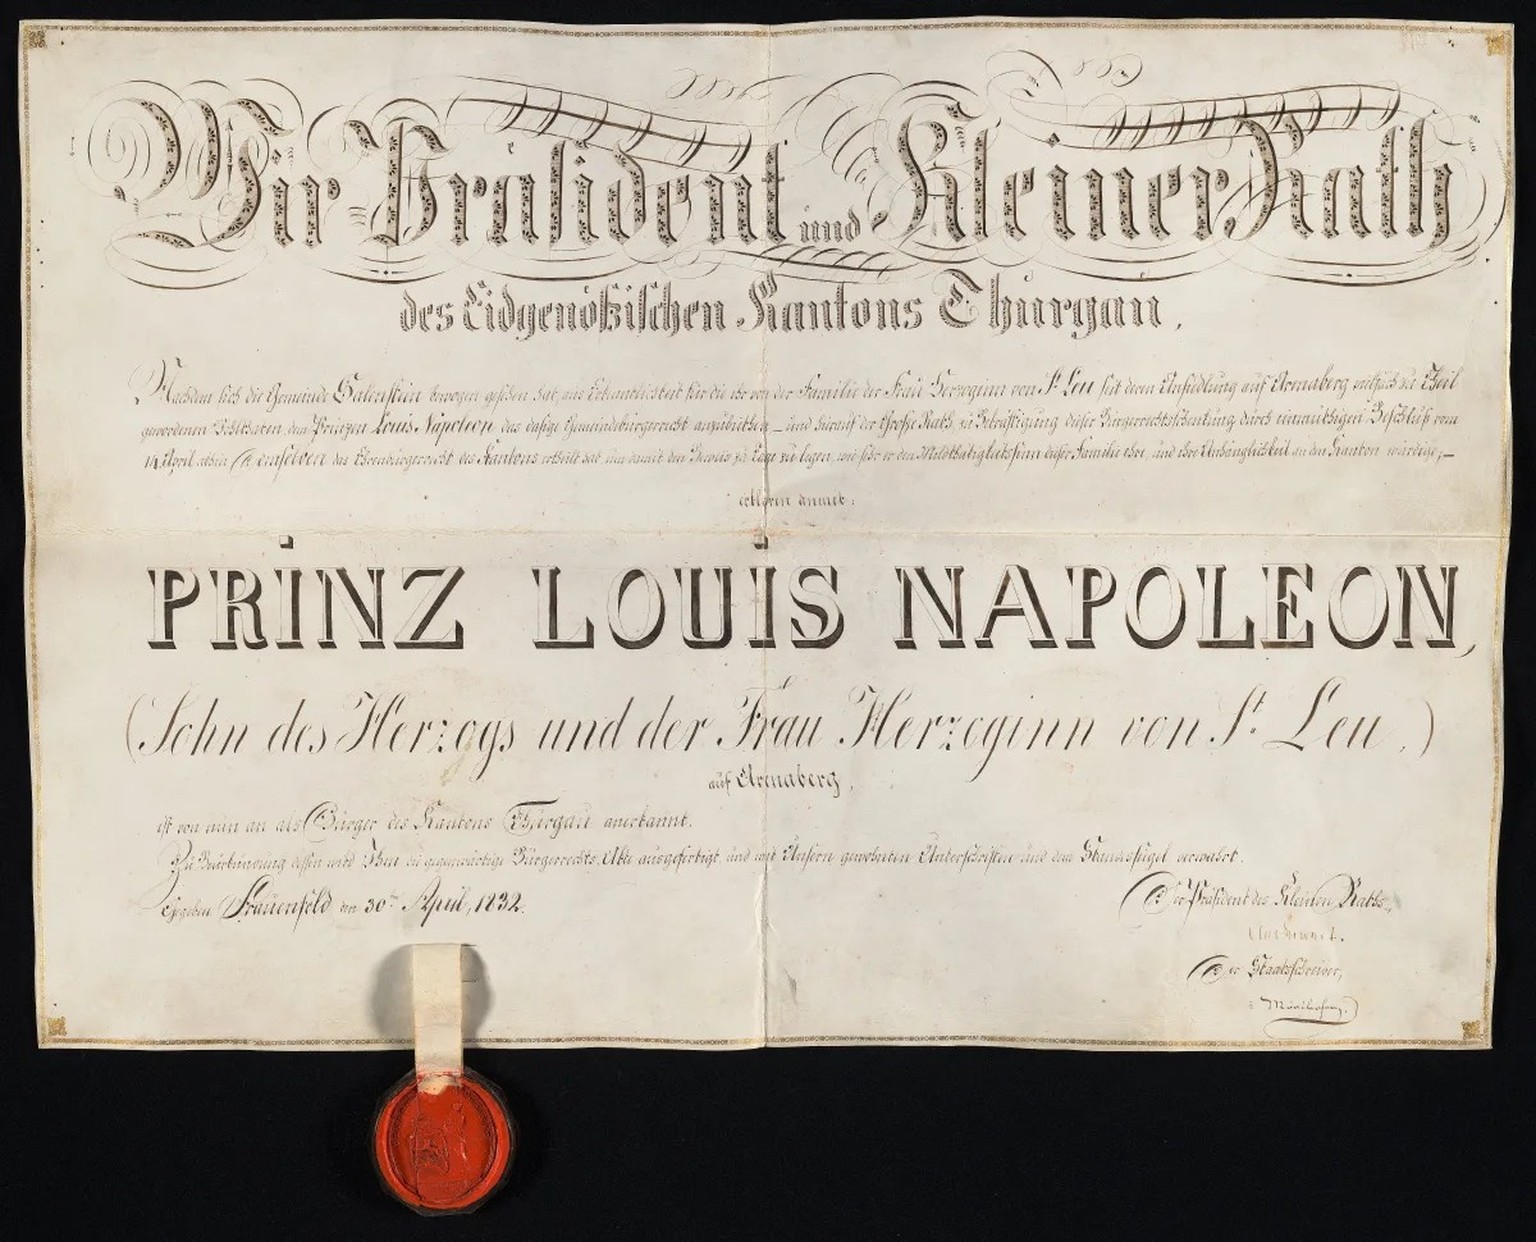 Wir Präsident und Kleiner Rath
des Eidgenößischen Kantons Thurgau,
Nachdem sich die Gemeinde Salenstein bewogen gesehen hat, aus Erkenntlichkeit für die ihr von der Familie der Frau Herzoginn von St. Leu seit deren Ansiedlung auf Arenaberg vielfach zu Theil
gewordenen Wohlthaten, dem Prinzen Louis Napoleon das dasige Gemeindebürgerrecht anzubiethen, – und hierauf der Große Rath, zu Bekräftigung dieser Bürgerrechtsschenkung durch einmüthigen Beschluß vom
14. April abhin Demselben das Ehrenbürgerrecht des Kantons ertheilt hat, um damit den Beweis zu Tage zu legen, wie sehr er den Mildthätigkeitssinn dieser Familie ehre, und ihre Anhänglichkeit an den Kanton würdige; –
erklären anmit:
PRINZ LOUIS NAPOLEON,
(Sohn des Herzogs und der Frau Herzoginn von St. Leu,)
auf Arenaberg,
ist von nun an als Bürger des Kantons Thurgau anerkannt.
Zu Beurkundung dessen wird Ihm die gegenwärtige Bürgerrechts-Akte ausgefertigt, und mit Unsern gewohnten Unterschriften und dem Standessigel verwahrt.
Gegeben Frauenfeld den 30ten April, 1832.
Der Präsident des Kleinen Raths,
Anderwert.
Der Staatsschreiber,
Mörikofer.